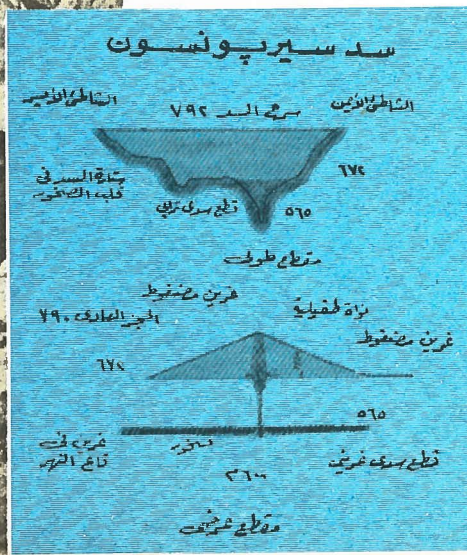 سد سيربونسون
الشاطئ الأيمن
سرج السد ٧٩٢
الشاطئ الأيسر
٦٧٢
ستارة السد في
قلب الصخور
قطع سدى ترابي
٥٦٥
مقطع طولي
غرين مضغوط
نواة طفيلية
الحجز العادى ٧٩٠
غرين مضغوط
٦٧٢
٥٦٥
غرين فى
قاع النهر
صخور
قطع سدى غريني
٦٠٠م
مقطع عرضى